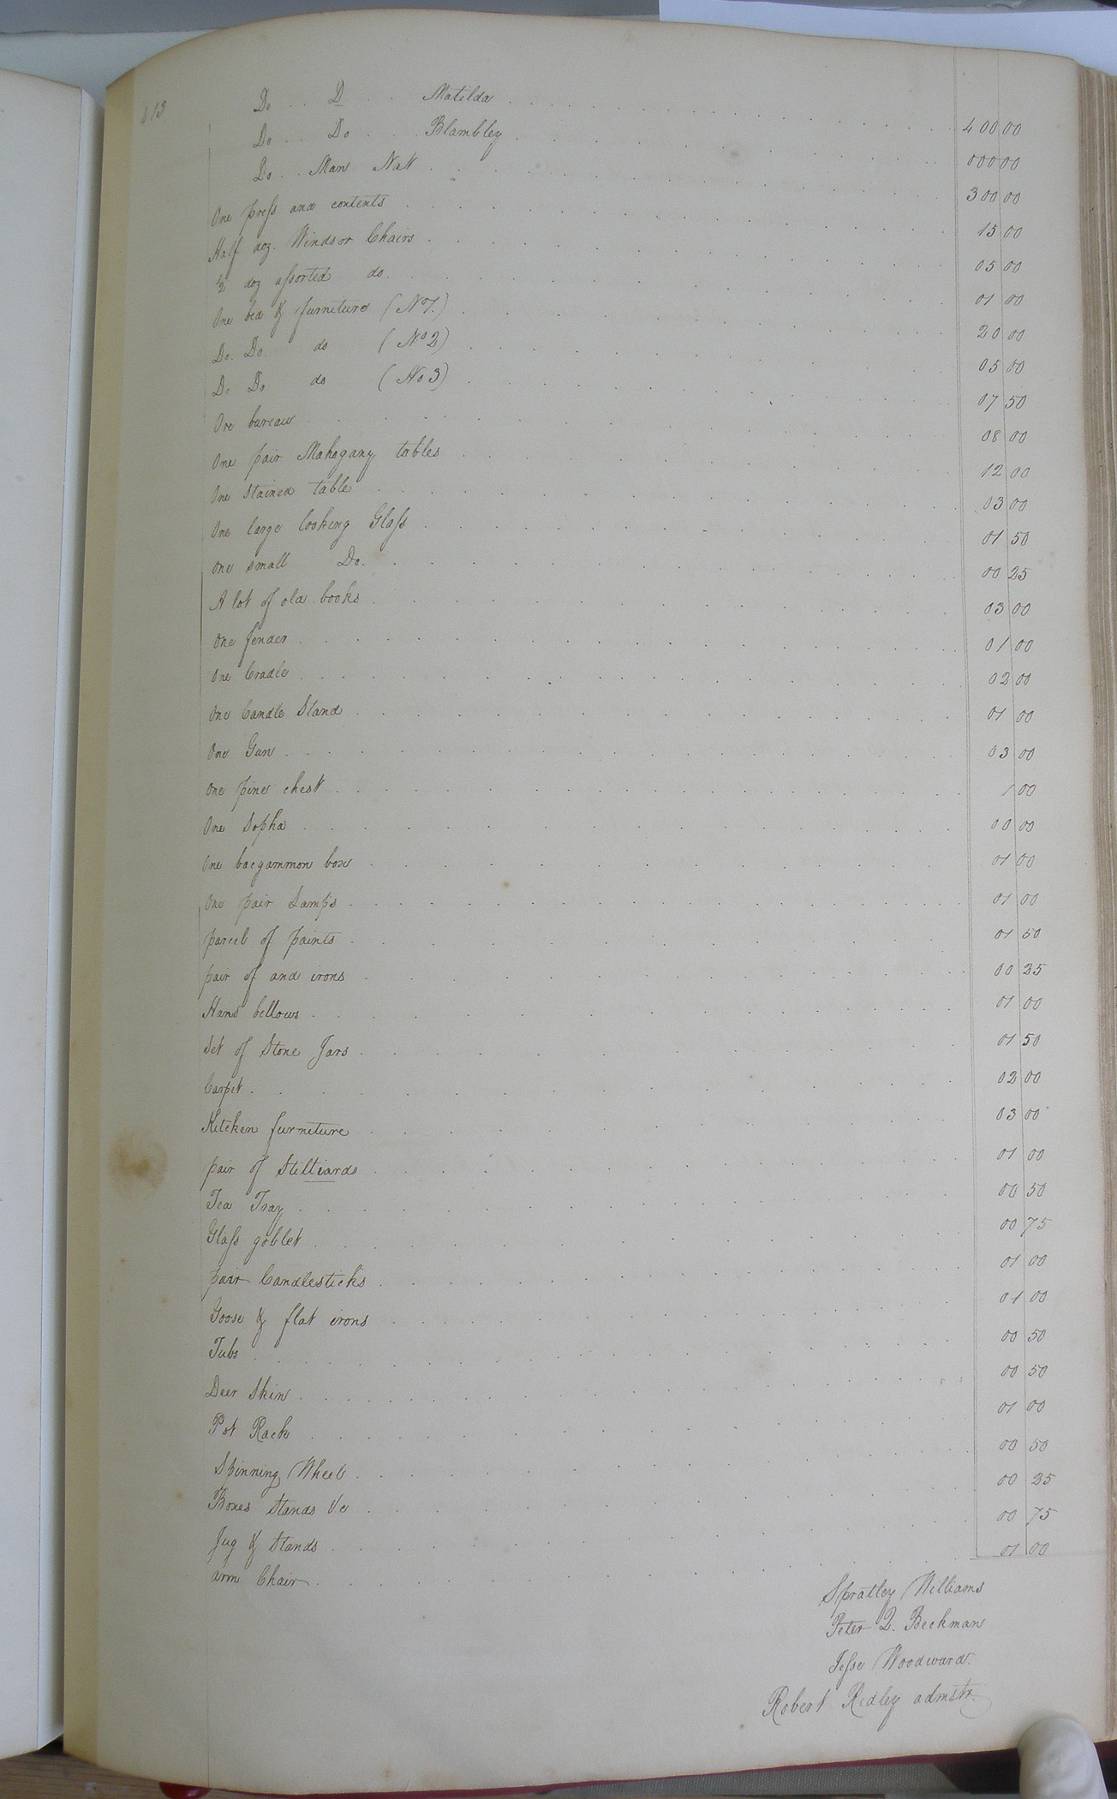 413
Do . . D . . Matilda 400 00
Do . . Do . . Blambley 000 00
Do . . Man Nat 300 00
One press and contents 15 00
Half doz. Windsor Chairs 05 00
½ doz assorted do. 01 00
One bed & furniture (No 1.) 20 00
Do. Do. do (No 2) 05 00
Do Do do (No 3) 07 50
One bureau 08 00
One pair Mahogany tables 12 00
One Stained table 03 00
One large looking Glass 01 50
One small Do. 00 25
A lot of old books 03 00
One fender 01 00
One Cradle 02 00
One Candle Stand 01 00
One Gun 03 00
One pine chest 1 00
One Sopha 00 00
One bacgammon box 01 00
One pair Lamps 01 00
parcel of paints 01 50
pair of and irons 00 25
Hand bellows 01 00
Set of Stone Jars 01 50
Carpet 02 00
Kitchen furniture 03 00
pair of Stilliards 01 00
Tea Tray 00 50
Glass goblet 00 75
pair Candlesticks 01 00
Goose & flat irons 01 00
Tubs 00 50
Deer Skin 00 50
Pot Rack 01 00
Spinning Wheel 00 50
Boxes Stands &c 00 25
Jug & Stands 00 75
arm Chair 01 00
Spratley Williams
Peter Q. Beckman
Jesse Woodward.
Robert Ridley admstr.